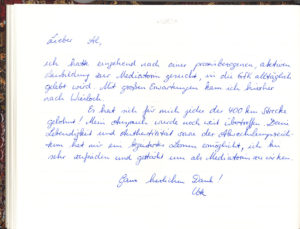 Lieber Al,
ich hatte eingehend nach einer praxisbezogenen, aktiven
Ausbildung zur Mediatorin gesucht, in die GfK alltäglich
gelebt wird. Mit großen Erwartungen kam ich hierher
nach Wiesloch.
Es hat sich für mich jeder der 400 km Strecke
gelohnt! Mein Anspruch wurde noch weit übertroffen. Deine
Lebendigkeit und Authentizität sowie der
hat mir ein Lernen ermöglicht, ich bin
sehr zufrieden und gestärkt um als Mediatorin zu wirken.
Ganz herzlichen Dank!